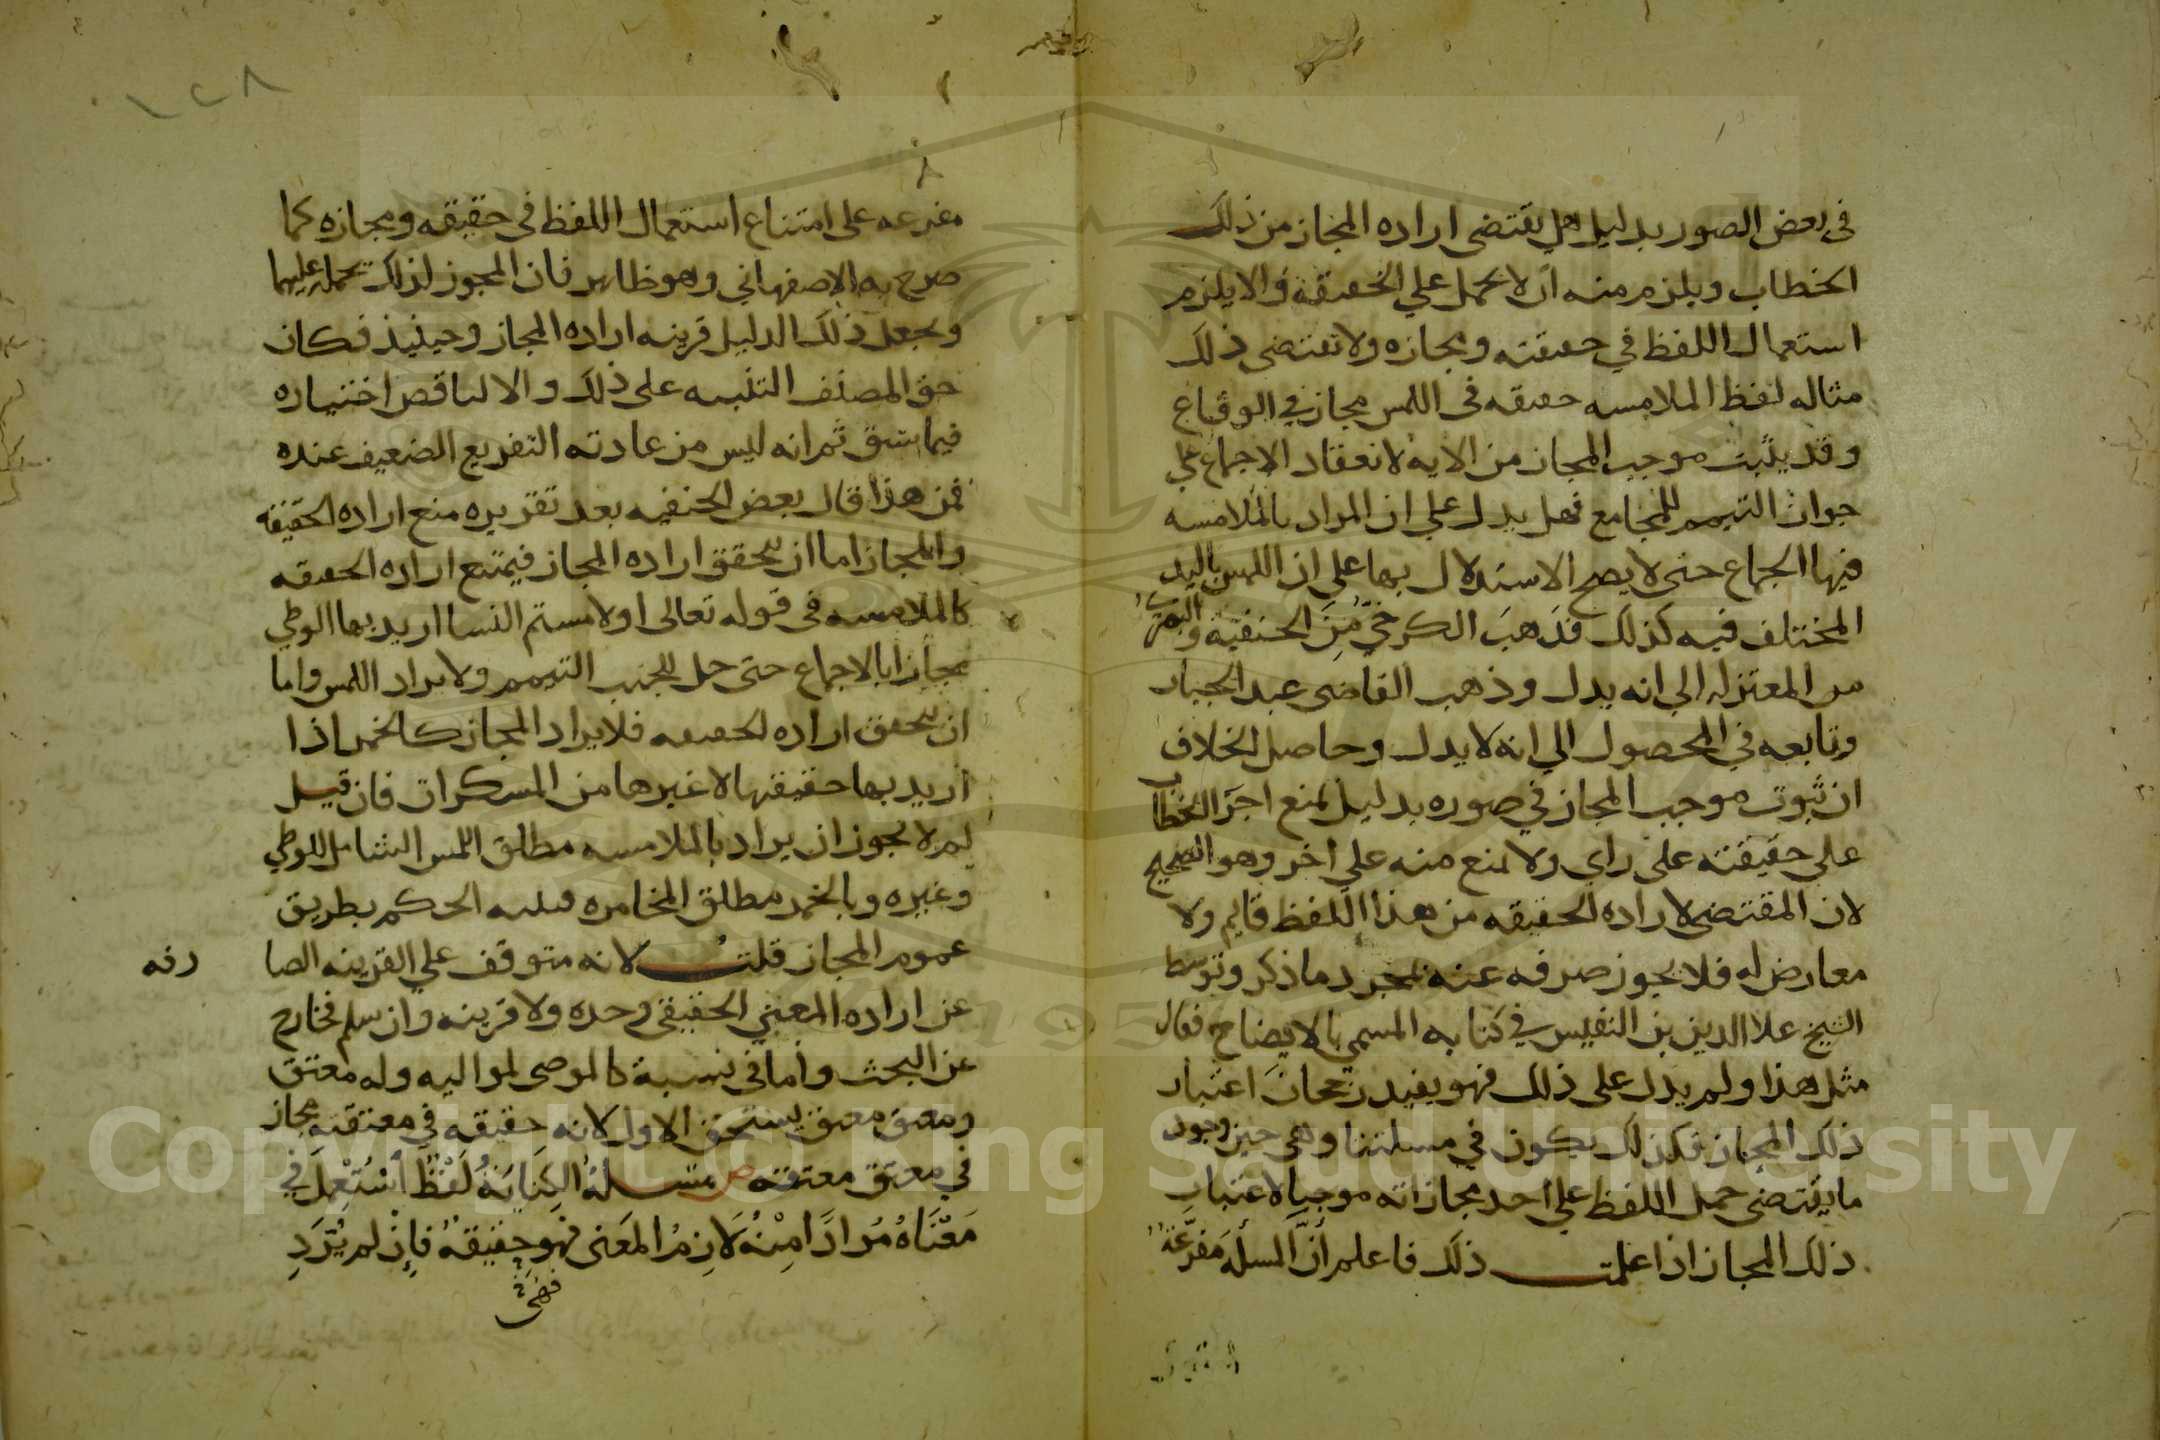 في بعض الصور بدليل هل يقتضي اراده المجاز من ذلك
الخطاب ويلزم منه ان لا يحمل علي الحقيقة والا يلزم
استعمال اللفظ في حقيقته ومجازه ولا تقتضي ذلك
مثاله لفظ الملامسه حقيقه في اللمس مجاز في الوقاع
وقد يثبت موجب المجاز من الايه لانعقاد الاجماع علي
جواز التيمم للمجامع فهل يدل علي ان المراد بالملامسه
فيها الجماع حتي لا يصح الاستدلال بها علي ان اللمس باليد
المختلف فيه كذلك فذهب الكرخي من الحنفية و
من المعتزله الي انه يدل وذهب القاضي عبد الجبار
وتابعه في المحصول الي انه لا يدل وحاصل الخلاف
ان ثبوت موجب المجاز في صوره بدليل يمنع اجرا الخطاب
علي حقيقته علي راي ولا يمنع منه علي اخر وهو الصحيح
لان المقتضي لاراده الحقيقه من هذا اللفظ قايم ولا
معارض له فلا يجوز صرفه عنه بمجرد ما ذكر وتوسط
الشيخ علا الدين بن النفيس في كتابه المسمي بالايضاح فقال
مثل هذا ولم يدل علي ذلك فهو يفيد رجحان اعتبار
ذلك المجاز فكذلك يكون في مسلتنا وهي حين وجود
ما يقتضي حمل اللفظ علي احد مجازاته موجبا لاعتبار
ذلك المجاز اذا علمت ذلك فاعلم أنّ المسألة مفرّعة
مفرعه علي امتناع استعمال اللفظ في حقيقه ومجازه كما
صرح به الاصفهاني وهو ظاهر فان المجوز لذلك يحمله عليهما
ويجعل ذلك الدليل قرينه اراده المجاز وحينيذ فكان
حق المصنف التنبيه علي ذلك والا لناقض اختياره
فيما سبق ثم انه ليس من عادته التفريع الضعيف عنده
فمن هذا قال بعض الحنفيه بعد تقريره منع اراده الحقيقه
والمجاز اما ان يتحقق اراده المجاز فيمتنع اراده الحقيقه
كالملامسه في قوله تعالي اولامستم النسا اريد بها الوطي
مجازا بالاجماع حتي حل للجنب التيمم ولا يراد اللمس واما
ان يتحقق اراده الحقيقه فلا يراد المجاز كالخمر اذا
اريد بها حقيقتها لا غيرها من المسكرات فان قيل
لم لا يجوز ان يراد بالملامسه مطلق اللمس الشامل للوطي
وغيره وبالخمر مطلق المخامره فيثبت الحكم بطريق
عموم المجاز قلت لانه متوقف علي القرينه الصا رفه
عن اراده المعني الحقيقي وحده ولا قرينه وان سلم فخارج
عن البحث واما في نسبة كالموصي لمواليه وله معتق
ومعتق معتق يستحق الاول لانه حقيقه في معتقته مجاز
في معتق معتقته ص مسلة الكِنَايَةُ لَفْظٌ اُسْتُعْمِلَ في
مَعْنَاهُ مُرَادًا مِنْهُ لَازِمُ المَعْنى فهو حقيقةٌ فإن لم يُرَدِ
فهي